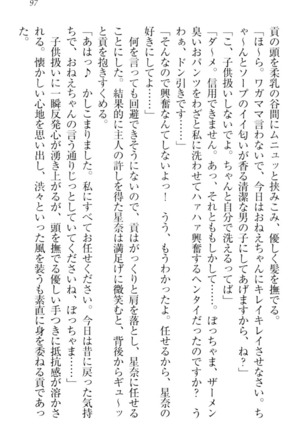 97
貢の頭を柔乳の谷間にムニュッと挟みこみ、優しく髪を撫でる。
「ほ～ら。ワガママ言わないで、今日はおねえちゃんにキレイキレイさせなさい。ち
ゃ～んとソープのイイ匂いが香る清潔な男の子にしてあげますから、ね？」
「こ、子供扱いしないでよ。ちゃんと自分で洗えるってば」
「ダ～メ。信用できません。あっ、それとももしかして……ぼっちゃま、ザーメン
臭いおパンツをわざと私に洗わせてハァハァ興奮するヘンタイだったのですか？　う
わぁ、ドン引きです……」
「そんなので興奮なんてしないよっ！　うう、もうわかったよ。任せるから、星奈の
好きにしてよ……」
　何を言っても回避できそうにないので、貢はがっくりと肩を落とし、星奈に任せる
ことにした。結果的に主人の許しを得た星奈は満足げに微笑むと、背後からギュ～ッ
と貢を抱きすくめる。
「あはっ♪　かしこまりました。私にすべてお任せください。今日は昔に戻った気持
ちで、おねえちゃんの言う通りじっとしていてくださいね、ぼっちゃま」
　子供扱いに一瞬反発心が湧き上がるが、頭を撫でる優しい手つきに抵抗感が溶かさ
れる。懐かしい心地を思い出し、渋々といった風を装うも素直に身を委ねる貢であっ
た。